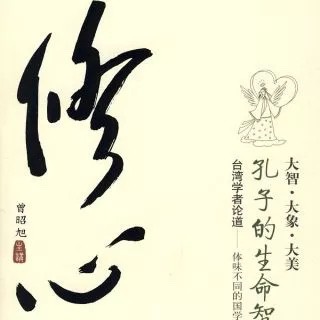 修心
大智·大象·大美
孔子的生命智
台湾学者论道——体味不同的国学
曾昭旭
主讲